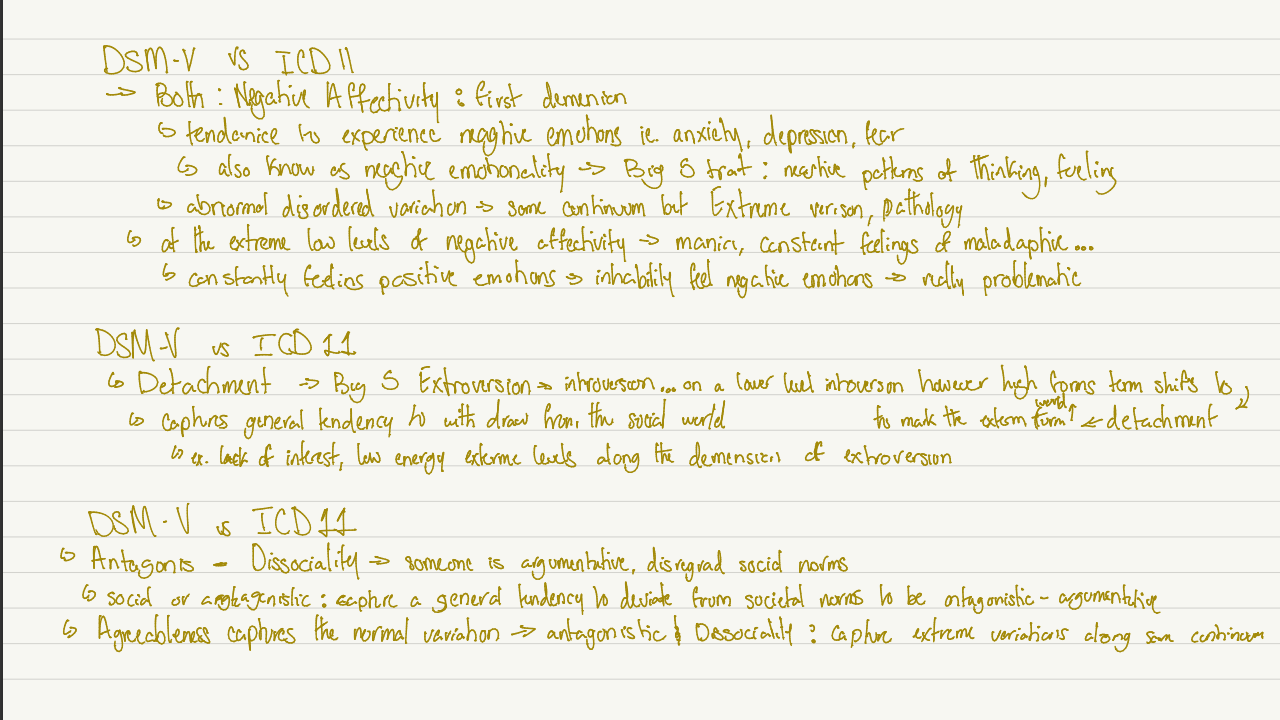 DSM-V vs ICD 11
→ Both : Negative Affectivity : first demenion
↳ tendanice to experience negative emotions ie. anxiety, depression, fear
↳ also know as negative emotionality → Big 5 trat : neactive patterns of thinking, feeling
↳ abnormal disordered variation → same continuum but Extreme verison, pathology
↳ at the extreme low levels of negative affectivity → manin, constant feelings of maladaptive...
↳ constantly feelins positive emotions → inhability feel negative emotions → really problematic
DSM-V vs ICD 11
↳ Detachment → Big 5 Extroversion → introversion... on a lower level introversion however high forms term shifts to
↳ captures general tendency to with draw from the social world to mark the extern form word ↑ ← detachment
↳ ex. lack of interest, low energy exterme levels along the demension of extroversion
DSM-V vs ICD 11
↳ Antagonis - Dissociality → someone is argumentative, disregrad social norms
↳ social or antagenistic : capture a general tendency to deviate from societal norms to be antagonistic - argumentative
↳ Agreeableness captures the normal variation → antagonistic & Dissociality : capture extreme variations along same continuum